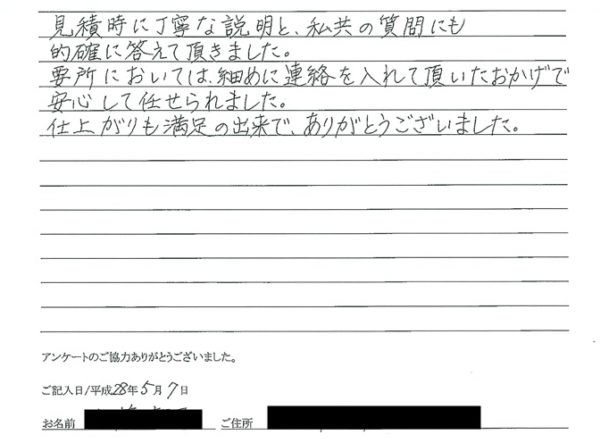 見積時に丁寧な説明と、私共の質問にも
的確に答えて頂きました。
要所においては、細めに連絡を入れて頂いたおかげで
安心して任せられました。
仕上がりも満足の出来で、ありがとうございました。
アンケートのご協力ありがとうございました。
ご記入日/平成28年5月7日
お名前 ご住所